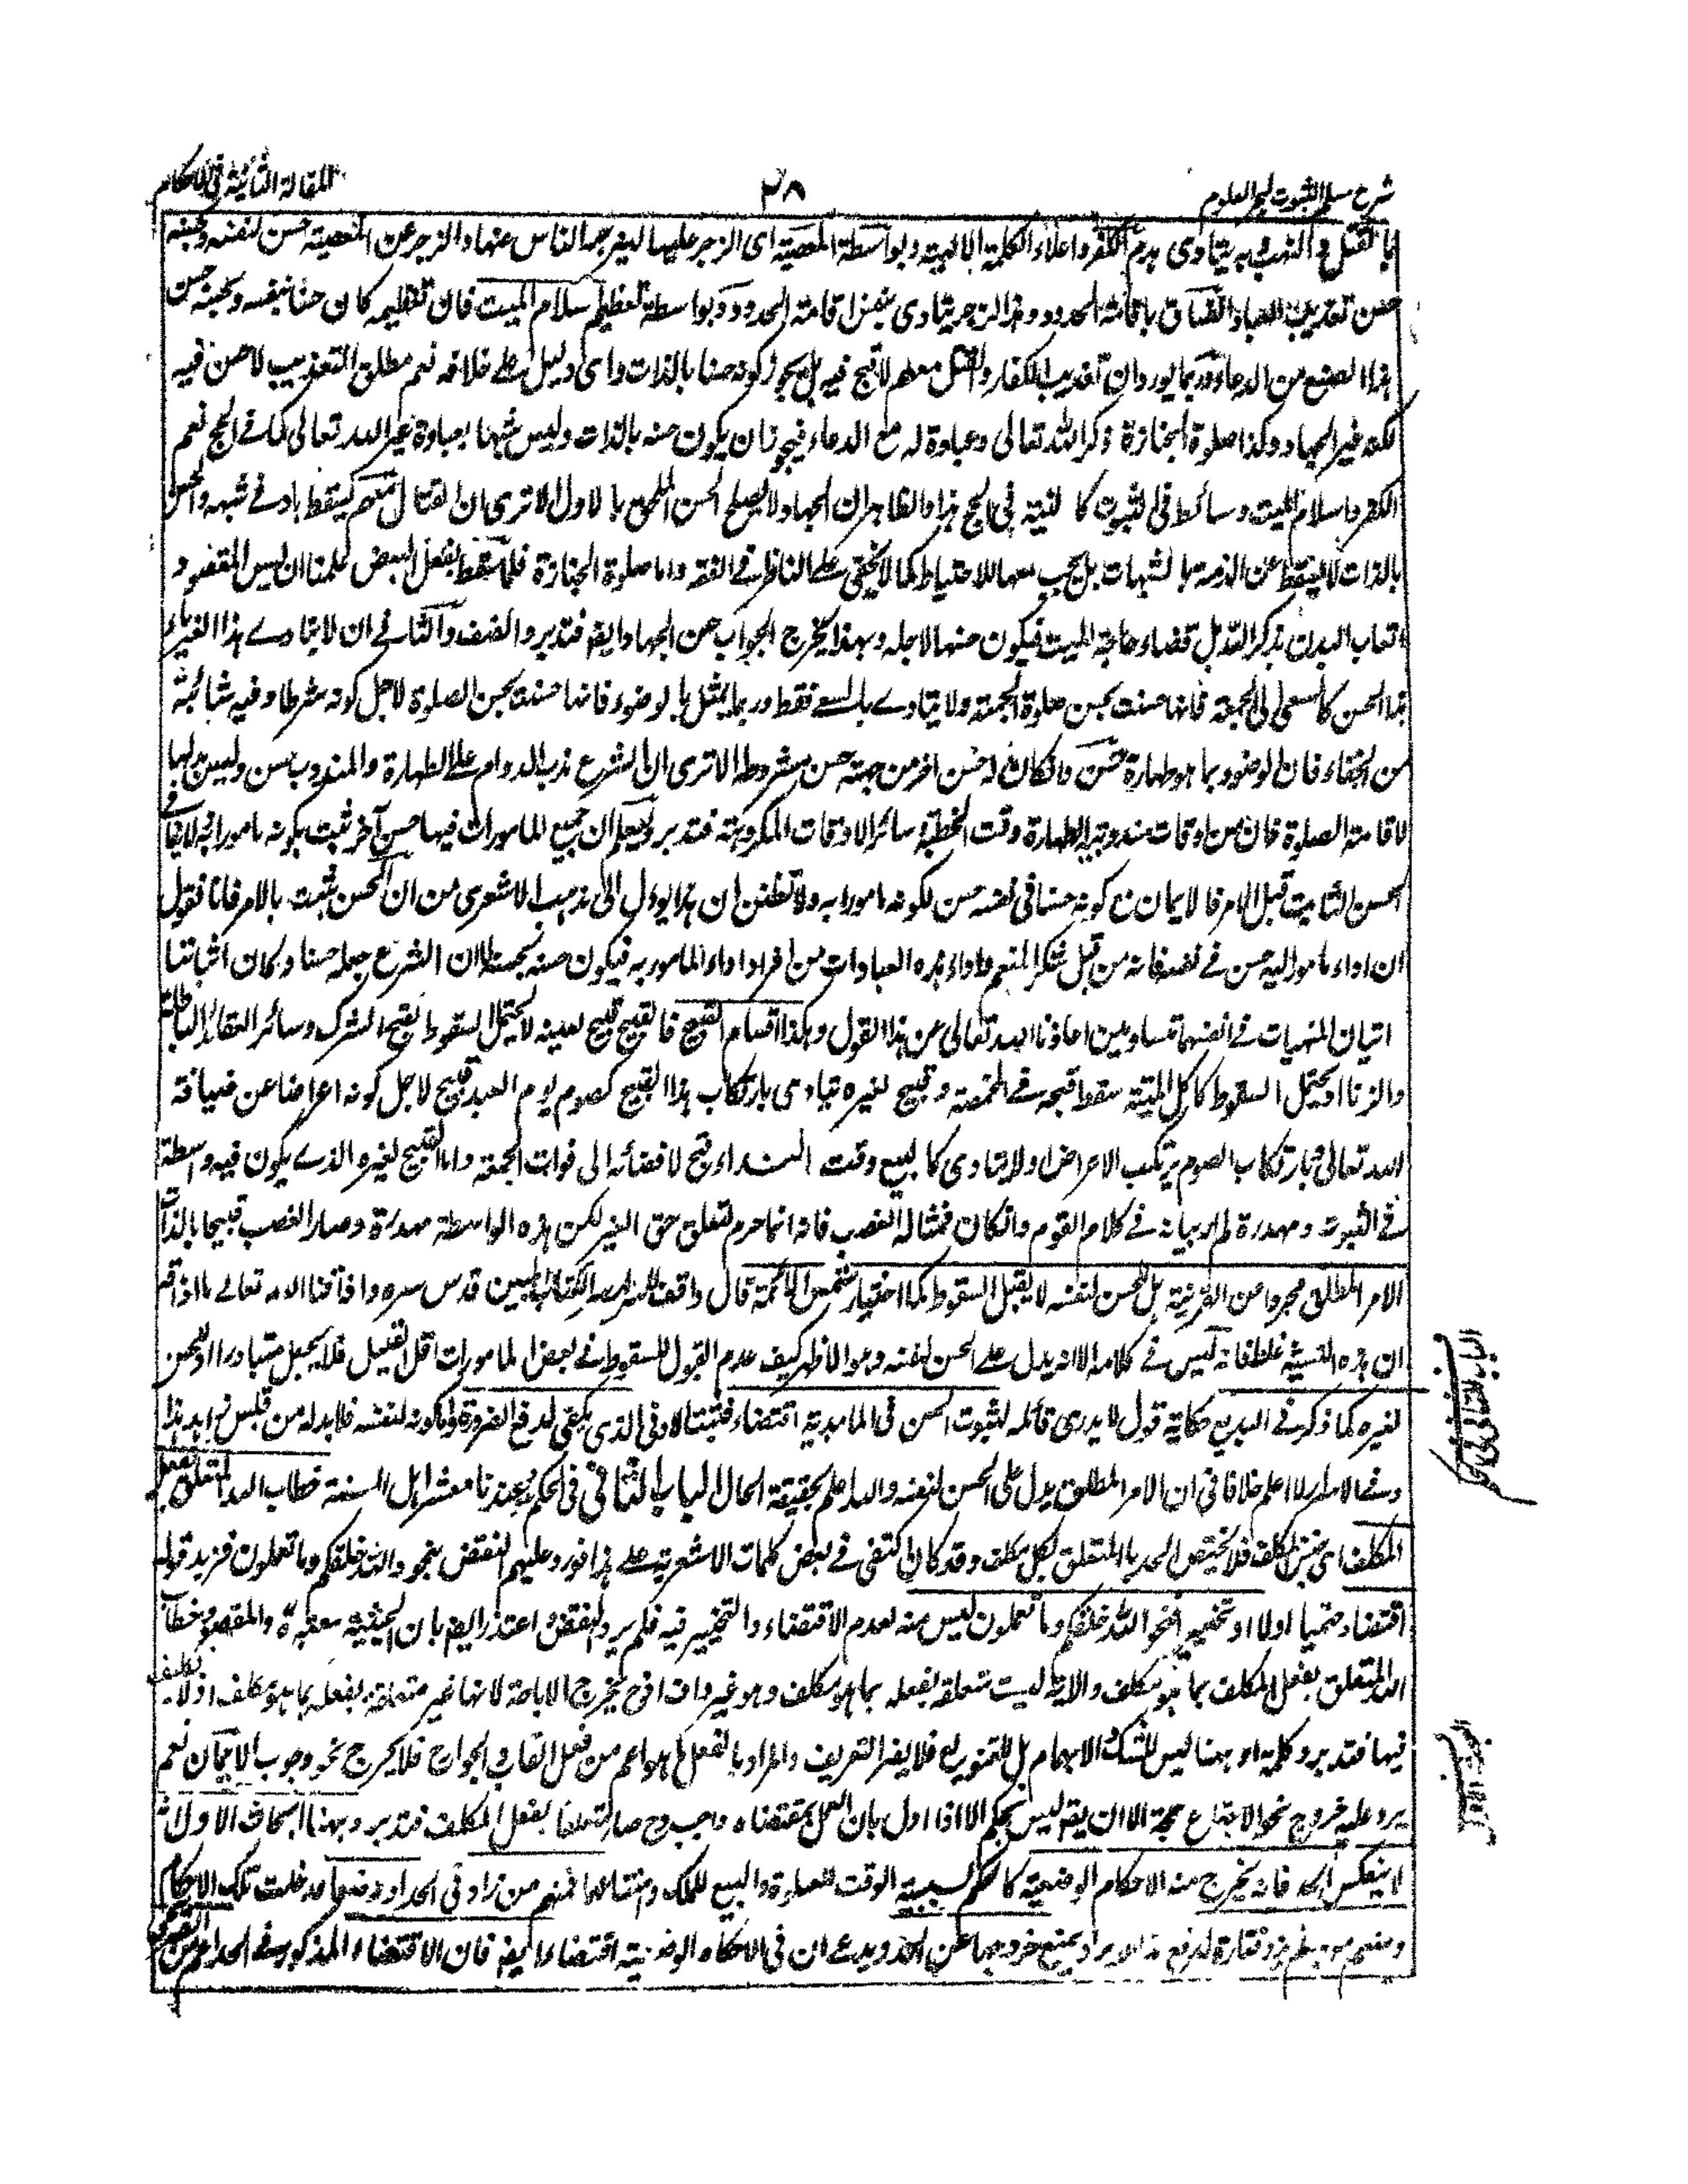 شرح مسلم الثبوت لبحر العلوم
٣٨
المقالة الثانية في الاحكام
بالقتل والنهب به يتادى هدم الكفر واعلاء الكلمة الالهية وبواسطة المعصية اى الزجر عليها لينزجر الناس عنها والزجر عن المعصية حسن لنفسه وبحسنه
حسن تعذيب العباد الفساق باقامة الحدود وهذا الزجر يتادى بنفس اقامة الحدود وبواسطة تعظيم اسلام الميت فان تعظيمه كان حسنا بنفسه وبحسنه حسن
هذا الصنيع من الدعاء وربما يورد ان تعذيب الكفار والقتل معهم لا قبح فيه بل يجوز كونه حسنا بالذات واى دليل على خلافه نعم مطلق التعذيب لا حسن فيه
لكنه غير الجهاد وكذا صلوة الجنازة ذكر الله تعالى وعبادة له مع الدعاء فيجوز ان يكون حسنه بالذات وليس شبها بعبادة غير الله تعالى كما في الحج نعم
الكفر واسلام الميت وسائط في الثبوت كا في الحج هذا والظاهر ان الجهاد لا يصلح للحسن الملحق بالاول الا ترى ان القتال معهم يسقط بادنى شبهة والحسن
بالذات لا يسقط عن الذمة بالشبهات بل يجب معها للاحتياط كما لا يخفى على الناظر في الفقه واما صلوة الجنازة فلما سقط بفعل البعض علمنا ان ليس المقصود
اتعاب البدن بذكر الله بل قضاء حاجة الميت فيكون حسنها لاجله وبهذا يخرج الجواب عن الجهاد ايضا فتدبر وانصف والثاني ان لا يتادى هذا الغير باداء
هذا الحسن كالسعي الى الجمعة فانها حسنت بحسن صلوة الجمعة ولا يتادى بالسعي فقط وربما يمثل بالوضوء فانها حسنت بحسن الصلوة لاجل كونه شرطا وفيه شائبة
من الخفاء فان الوضوء بما هو طهارة حسن وان كان له حسن اخر من جهة حسن مشروطه الا ترى ان الشرع ندب الدوام على الطهارة والمندوب حسن وليس لها
لاقامة الصلوة فان من اوقات مندوبية الطهارة وقت الخطبة وسائر الاوقات المكروهة فتدبر وليعلم ان جميع المامورات فيها حسن آخر ثبت بكونه مامورا به لا ينافي
الحسن الثابت قبل الامر فالايمان مع كونه حسنا في نفسه حسن لكونه مامورا به ولا تظنن ان هذا يؤول الى مذهب الاشعرى من ان الحسن ثبت بالامر فانا نقول
ان اداء مامور اليه حسن في نفسه فانه من قبل شكر المنعم واداء هذه العبادات من افراد اداء المامور به فيكون حسنه بحسنه لا ان الشرع جعله حسنا وكان
اتيان المنهيات في انفسهما متساويين اعاذنا الله تعالى عن هذا القول وهكذا اقسام القبيح فالقبيح قبيح لعينه لا يحتمل السقوط كقبح الشرك وسائر العقائد الباطلة
والزنا او يحتمل السقوط كاكل الميتة سقط قبحه في المخمصة وقبيح لغيره يتادى بارتكاب هذا القبيح كصوم يوم العيد قبيح لاجل كونه اعراضا عن ضيافة
الله تعالى فبارتكاب الصوم يرتكب الاعراض او لا يتادى كالبيع وقت النداء قبح لافضائه الى فوات الجمعة واما القبيح لغيره الذى يكون فيه واسطة
في الثبوت ومهدرة لم ار بيانه في كلام القوم وان كان فمثاله الغصب فانه انما حرم لتعلق حق الغير لكن هذه الواسطة مهدرة وصار الغصب قبيحا بالذات
الامر المطلق مجردا عن القرينة بل للحسن لنفسه لا يقبل السقوط كما اختيار شمس الائمة قال واقف قدس سره واذاقنا الله تعالى ما اذاقه
ان هذه النسبة غلط فانه ليس في كلامه الا انه يدل على الحسن لنفسه وهو الاظهر كيف عدم القبول للسقوط في بعض المامورات اقل القليل فلا يجعل متبادرا او للحسن
لغيره كما ذكر في البديع حكاية قول لا يدرى قائله لثبوت الحسن في المامور به اقتضاء فيثبت الادنى الذى يكفي لدفع الضرورة واما كونه لنفسه فلا بد له من
وفي الاسرار لا اعلم خلافا في ان الامر المطلق يدل على الحسن لنفسه والله اعلم بحقيقة الحال الباب الثاني في الحكم وهو عندنا معشر اهل السنة خطاب الله المتعلق بفعل
المكلف اى جنس المكلف فلا يختص الحد بالمتعلق لكل مكلف وقد كان اكتفى في بعض كلمات الاشعرية على هذا فورد عليهم النقض بنحو والله خلقكم وما تعملون فزيد قوله
اقتضاء حتميا اولا او تخييرا فنحو الله خلقكم وما تعملون ليس منه لعدم الاقتضاء والتخيير فيه فلم يرد النقض واعتذر ايضا بان الحيثية معتبرة والمقصود خطاب
الله المتعلق بفعل المكلف بما هو مكلف والآية ليست متعلقة بفعله بما هو مكلف وهو غير واف اذ يخرج الاباحة لانها غير متعلقة بفعله بما هو مكلف اذ لا تكليف
فيها فتدبر وكلمة او ههنا ليس للشك والابهام بل للتنويع فلا يضر التعريف والمراد بالفعل ما هو اعم من فعل القلب والجوارح فلا يخرج نحو وجوب الايمان نعم
يرد عليه خروج نحو الاجماع حجة الا ان يقال ليس بحكم الا اذا اول بان العمل بمقتضاه واجب وح صار متعلقا بفعل المكلف فتدبر وههنا ابحاث الاول انه
لا ينعكس الحد فانه يخرج منه الاحكام الوضعية كالحكم بسببية الوقت للصلوة والبيع للملك وامثالهما فمنهم من زاد في الحد او وضعا فدخلت تلك الاحكام
ومنهم من لم يزد فتارة لدفع هذا الايراد يمنع خروجها عن الحد ويدعى ان في الاحكام الوضعية اقتضاء ما ايضا فان الاقتضاء المذكور في الحد اعم من
الباب الثاني في الحكم